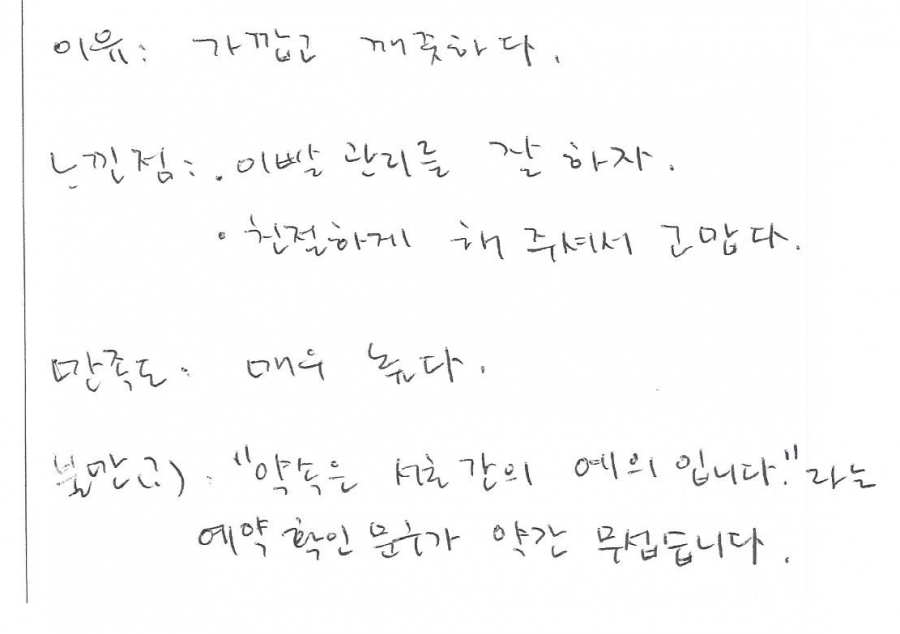 이유: 가깝고 깨끗하다.
느낀점: · 이빨 관리를 잘 하자.
· 친절하게 해 주셔서 고맙다.
만족도: 매우 높다.
불만(?): "약속은 서로 간의 예의 입니다."라는
예약 확인 문구가 약간 무섭습니다.